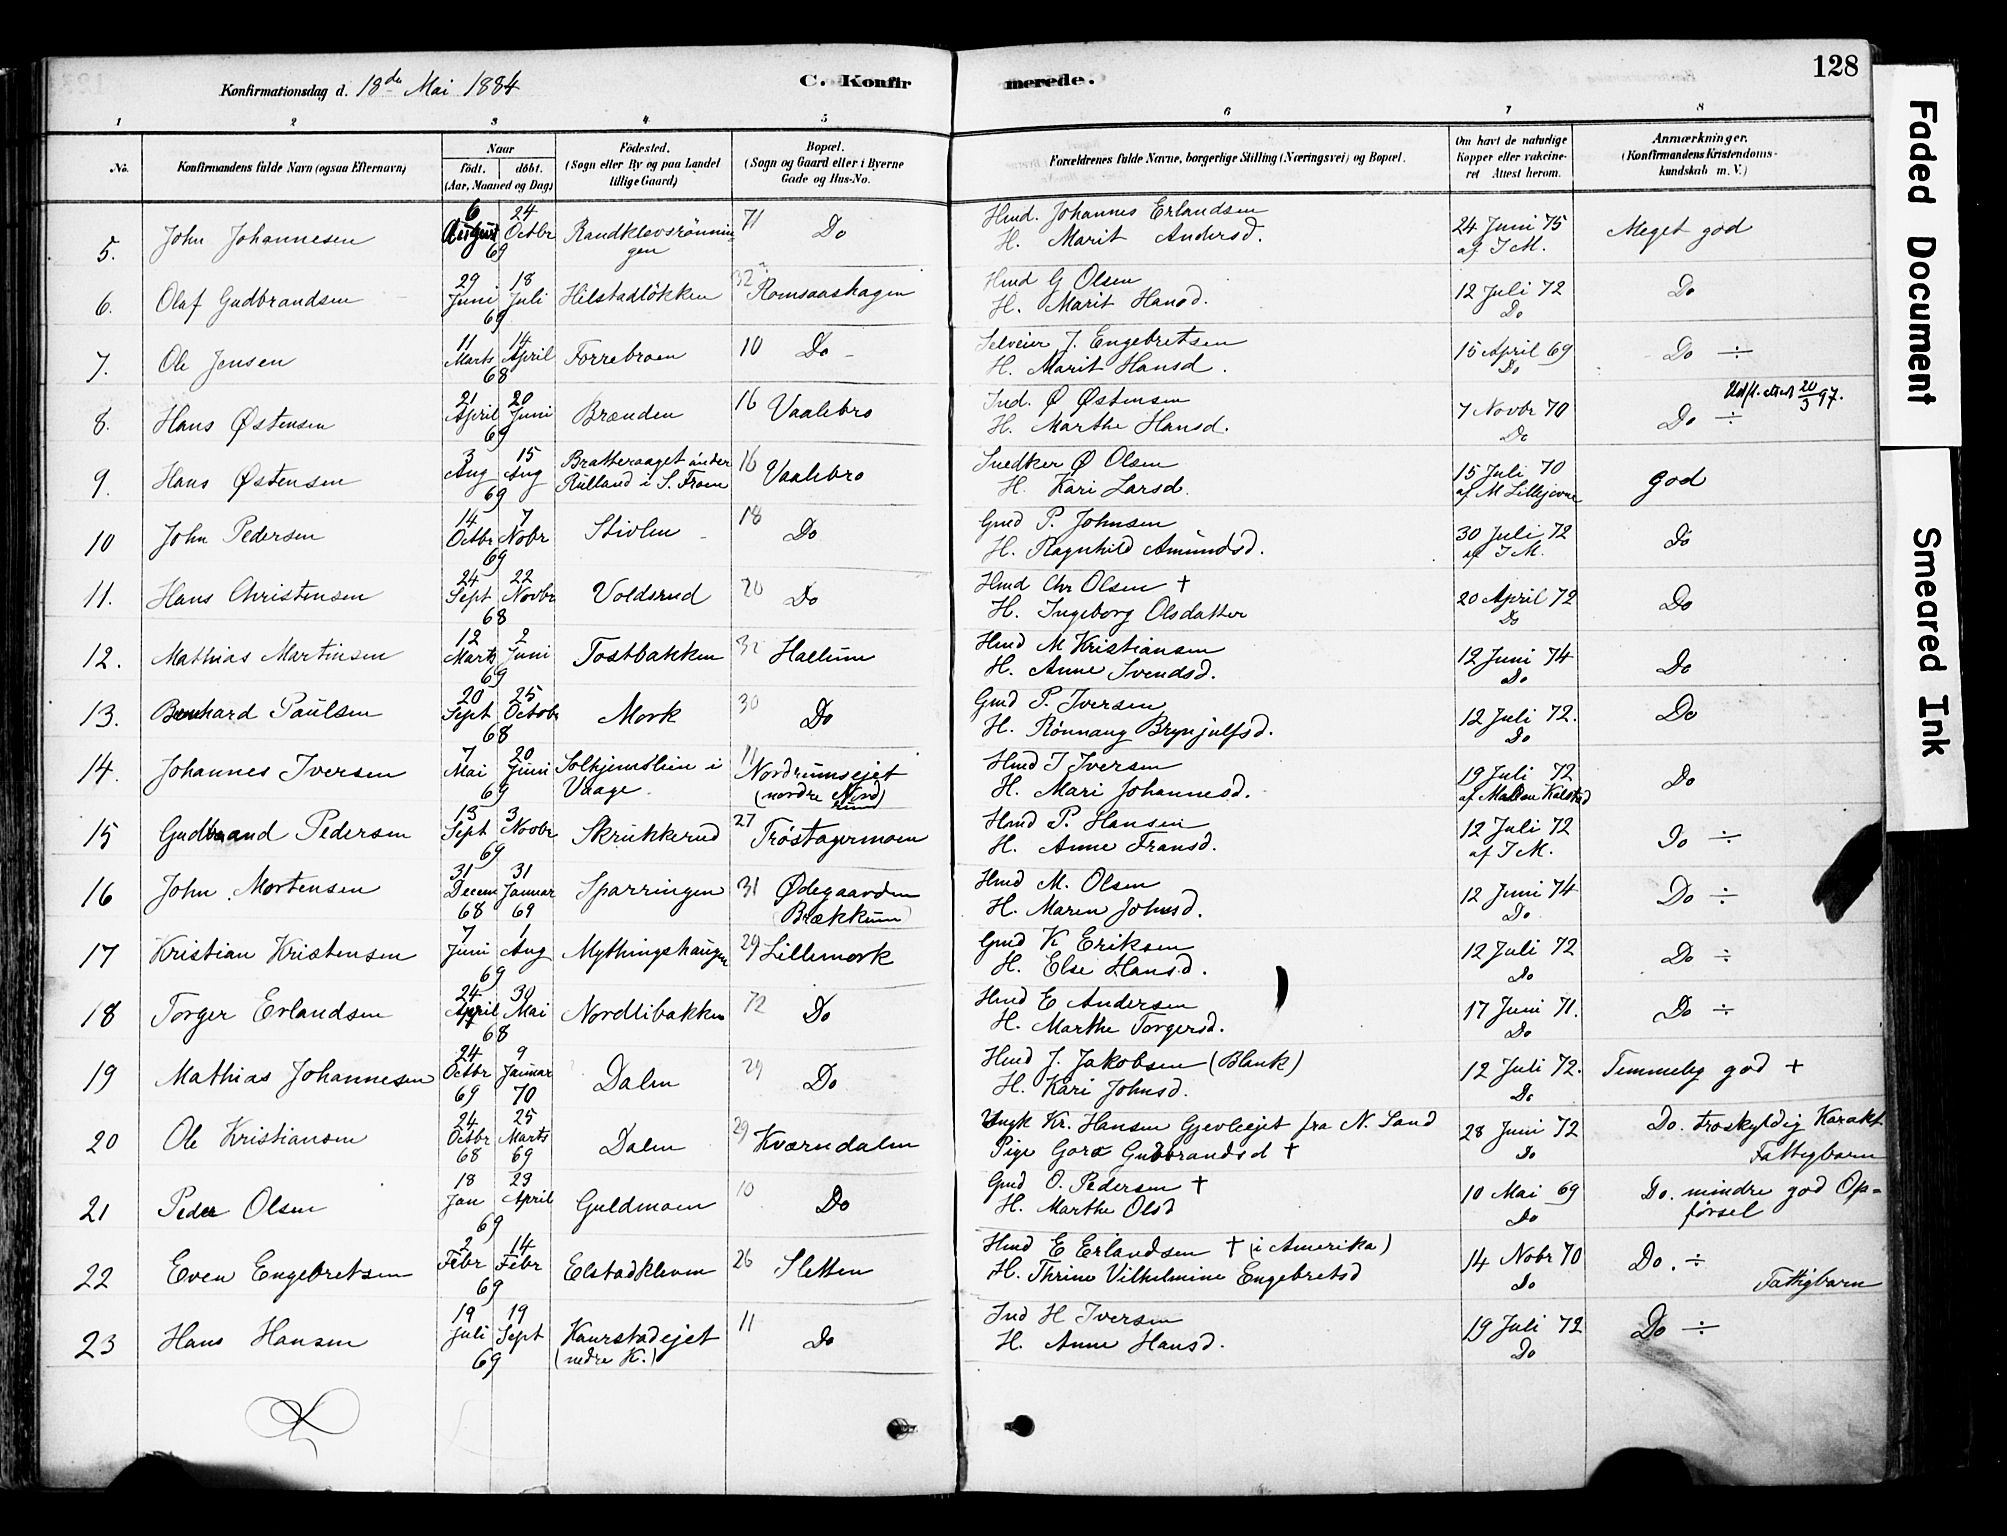 128
Konfirmationsdag d. 18de Mai 1884
C. Konfirmerede.
1 2 3 4 5 6 7 8
No.
Konfirmandens fulde Navn (ogsaa Efternavn)
Naar
födt. döbt.
(Aar, Maaned og Dag)
Födested.
(Sogn eller By og paa Landet
tillige Gaard)
Bopæl.
(Sogn og Gaard eller i Byerne
Gade og Hus-No.
Forældrenes fulde Navne, borgerlige Stilling (Næringsvei) og Bopæl.
Om havt de naturlige
Kopper eller vakcine-
ret Attest herom.
Anmærkninger.
(Konfirmandens Kristendoms-
kundskab m. V.)
5. John Johannesen 6 August 24 Octbr 69 Randklevsrønningen 71 Do Hmd. Johannes Erlandsen H. Marit Andersd. 24 Juni 75 af J M. Meget god
6. Olaf Gudbrandsen 29 Juni 18 Juli 69 Hilstadløkken 32 Romsaashagen Hmd G Olsen H. Marit Hansd. 12 Juli 72 Do Do
7. Ole Jensen 11 Marts 14 April 68 Forrebroen 10 Do Selveier J. Engebretsen H. Marit Hansd. 15 April 69 Do Do ÷
8. Hans Østensen 21 April 20 Juni 69 Brænden 16 Vaalebro Ind. Ø Østensen H. Marthe Hansd. 7 Novbr 70 Do Do ÷ Udfl. attest 20/3 97.
9. Hans Østensen 3 Aug 15 Aug 69 Bratteraaget under Rulland i S. Fron 16 Vaalebro Snedker Ø Olsen H. Kari Larsd. 15 Juli 70 af M Lillejorne god
10 John Pedersen 14 Octbr 7 Nobr 69 Stivlen 18 Do Gmd P. Johnsen H. Ragnhild Amundsd. 30 Juli 72 af J M. Do
11. Hans Christensen 24 Sept 22 Novbr 68 Voldsrud 20 Do Hmd Chr Olsen † H. Ingeborg Olsdatter 20 April 72 Do Do
12. Mathias Martinsen 12 Marts 2 Juni 69 Tostbakken 32 Hallum Hmd M Kristiansen H. Anne Svendsd. 12 Juni 74 Do Do
13. Bernhard Paulsen 20 Sept 25 Octobr 68 Mork 30 Do Gmd P. Iversen H. Rønnaug Brynjulfsd. 12 Juli 72. Do Do
14. Johannes Iversen 7 Mai 20 Juni 69 Solhjemslien i Vaage. 11 Nordrumsejet (nordre Nordrum) Hmd I Iversen H. Mari Johannesd. 19 Juli 72 Do
15 Gudbrand Pedersen 13 Sept 3 Novbr 69 Skrukkerud 27 Trøstagermoen Hmd P. Hansen H. Anne Fransd. 12 Juli 72 af J M. Do ÷
16 John Mortensen 31 Decem 68 31 Januar 69 Sparringen 31 Ødegaarden (Brækkum) Hmd M. Olsen H. Maren Johnsd. 12 Juni 74 Do Do ÷
17 Kristian Kristensen 7 Juni 1 Aug 69 Mythingshaugen 29 Lillemork Gmd K Eriksen H. Else Hansd. 12 Juli 72 Do Do ÷
18 Torger Erlandsen 24 April 30 Mai 68 Nordlibakken 72 Do Hmd E Andersen H. Marthe Torgersd. 17 Juni 71. Do Do ÷
19 Mathias Johannesen 24 Octbr 69 9 Januar 70 Dalen 29 Do Hmd J. Jakobsen (Blank) H. Kari Johnsd. 12 Juli 72. Do Temmelig god +
20 Ole Kristiansen 24 Octbr 68 25 Marts 69 Dalen 29 Kværndalen Ungk Kr. Hansen Gjevliejet fra N. Land Pige Goro Gudbrandsd † 28 Juni 72 Do Do. troskyldig Karakt Fattigbarn
21 Peder Olsen 18 Jan 23 April 69 Guldmoen 10 Do Gmd O. Pedersen † H. Marthe Olsd 10 Mai 69 Do Do. mindre god Op=førsel
22 Even Engebretsen 2 Febr 14 Febr 69 Elstadkleven 26 Sletten Hmd E Erlandsen † (i Amerika) H. Thrine Vilhelmine Engebretsd 14 Nobr 70 Do Do. ÷ Fattigbarn
23 Hans Hansen 19 Juli 19 Sept 69 Kaurstadejet (nedre K.) 11 Do Ind H Iversen H. Anne Hansd. 19 Juli 72 Do Do ÷
Faded Document
Smeared Ink